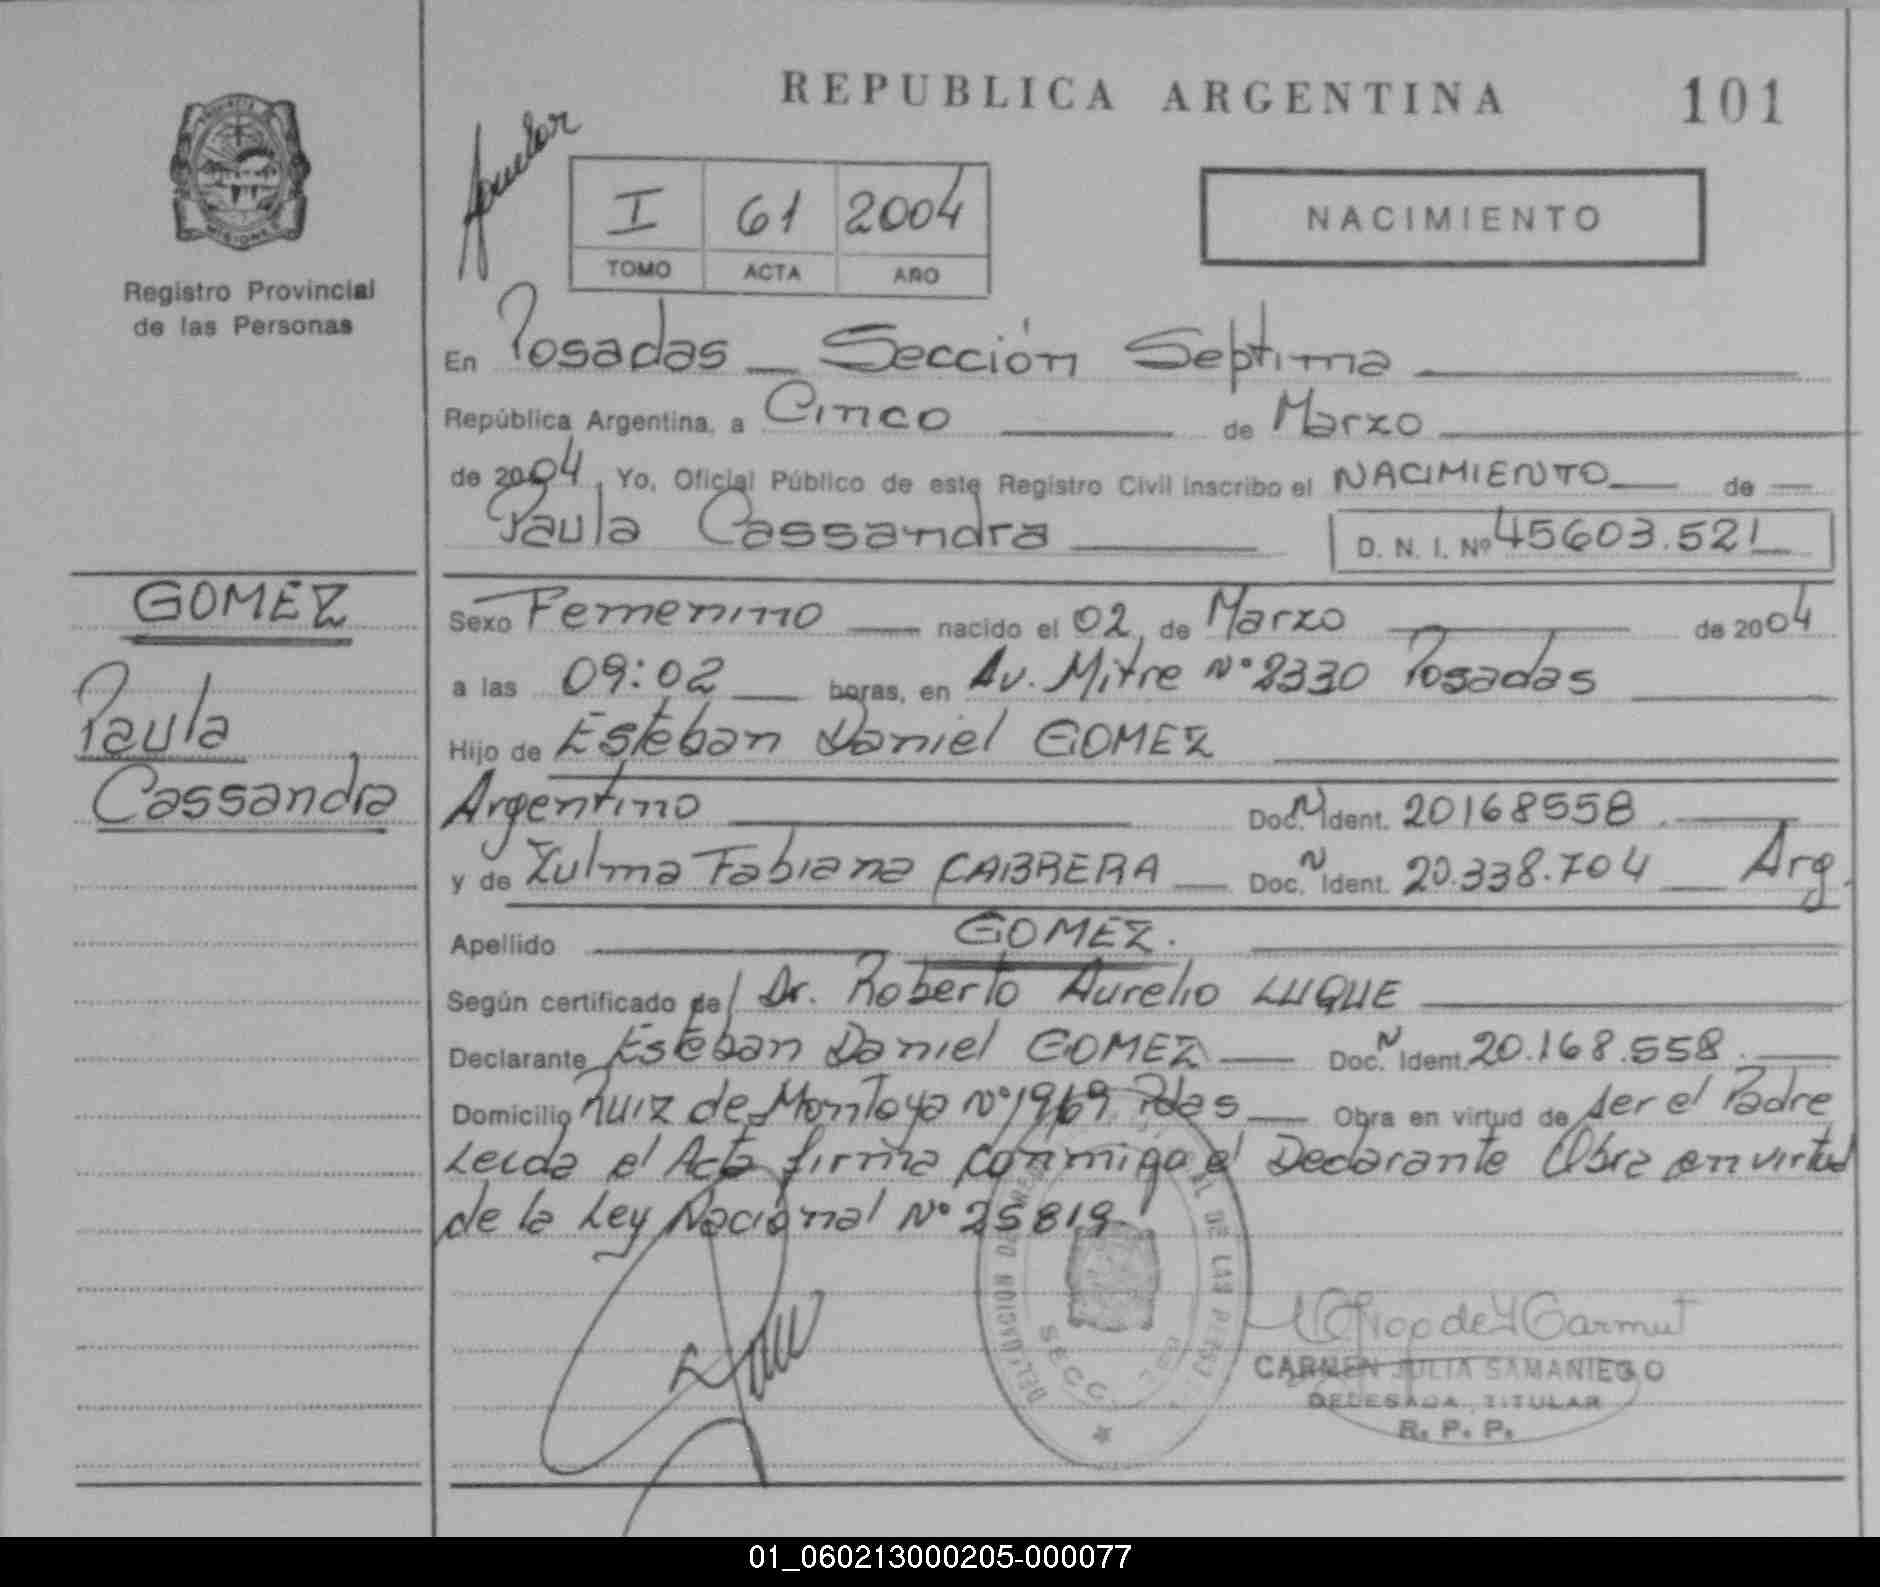 REPUBLICA ARGENTINA
101
I 61 2004
TOMO ACTA AÑO
NACIMIENTO
PROVINCIA
MISIONES
Registro Provincial
de las Personas
En Posadas _ Sección Septima
República Argentina, a Cinco de Marzo
de 2004, Yo, Oficial Público de este Registro Civil inscribo el NACIMIENTO de
Paula Cassandra D. N. I. Nº 45603.521
GOMEZ
Paula
Cassandra
Sexo Femenino nacido el 02, de Marzo de 2004
a las 09:02 horas, en Av. Mitre Nº 2330 Posadas
Hijo de Esteban Daniel GOMEZ
Argentino Doc. N Ident. 20168558
y de Zulma Fabiana CABRERA Doc. N Ident. 20.338.704 Arg.
Apellido GOMEZ.
Según certificado de/ Dr. Roberto Aurelio LUQUE
Declarante Esteban Daniel GOMEZ Doc. N Ident. 20.168.558.
Domicilio Ruiz de Montoya Nº 1969 Pdas Obra en virtud de ser el Padre
Leida el Acta firma conmigo el Declarante Obra en virtud
de la Ley Nacional Nº 25819
CARMEN JULIA SAMANIEGO
DELEGADA TITULAR
R. P. P.
01_060213000205-000077